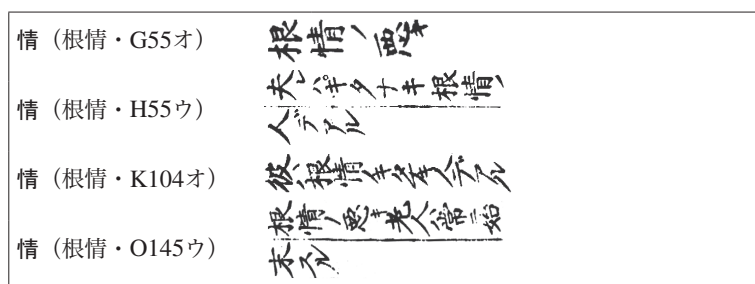 情（根情・G55オ） 根情ノ悪キ
情（根情・H55ウ） 夫レハキタナキ根情ノ
人デアル
情（根情・K104オ） 彼ハ根情ノキタナキ人デアル
情（根情・O145ウ） 根情ノ悪キ老人ハ常ニ始
末スル